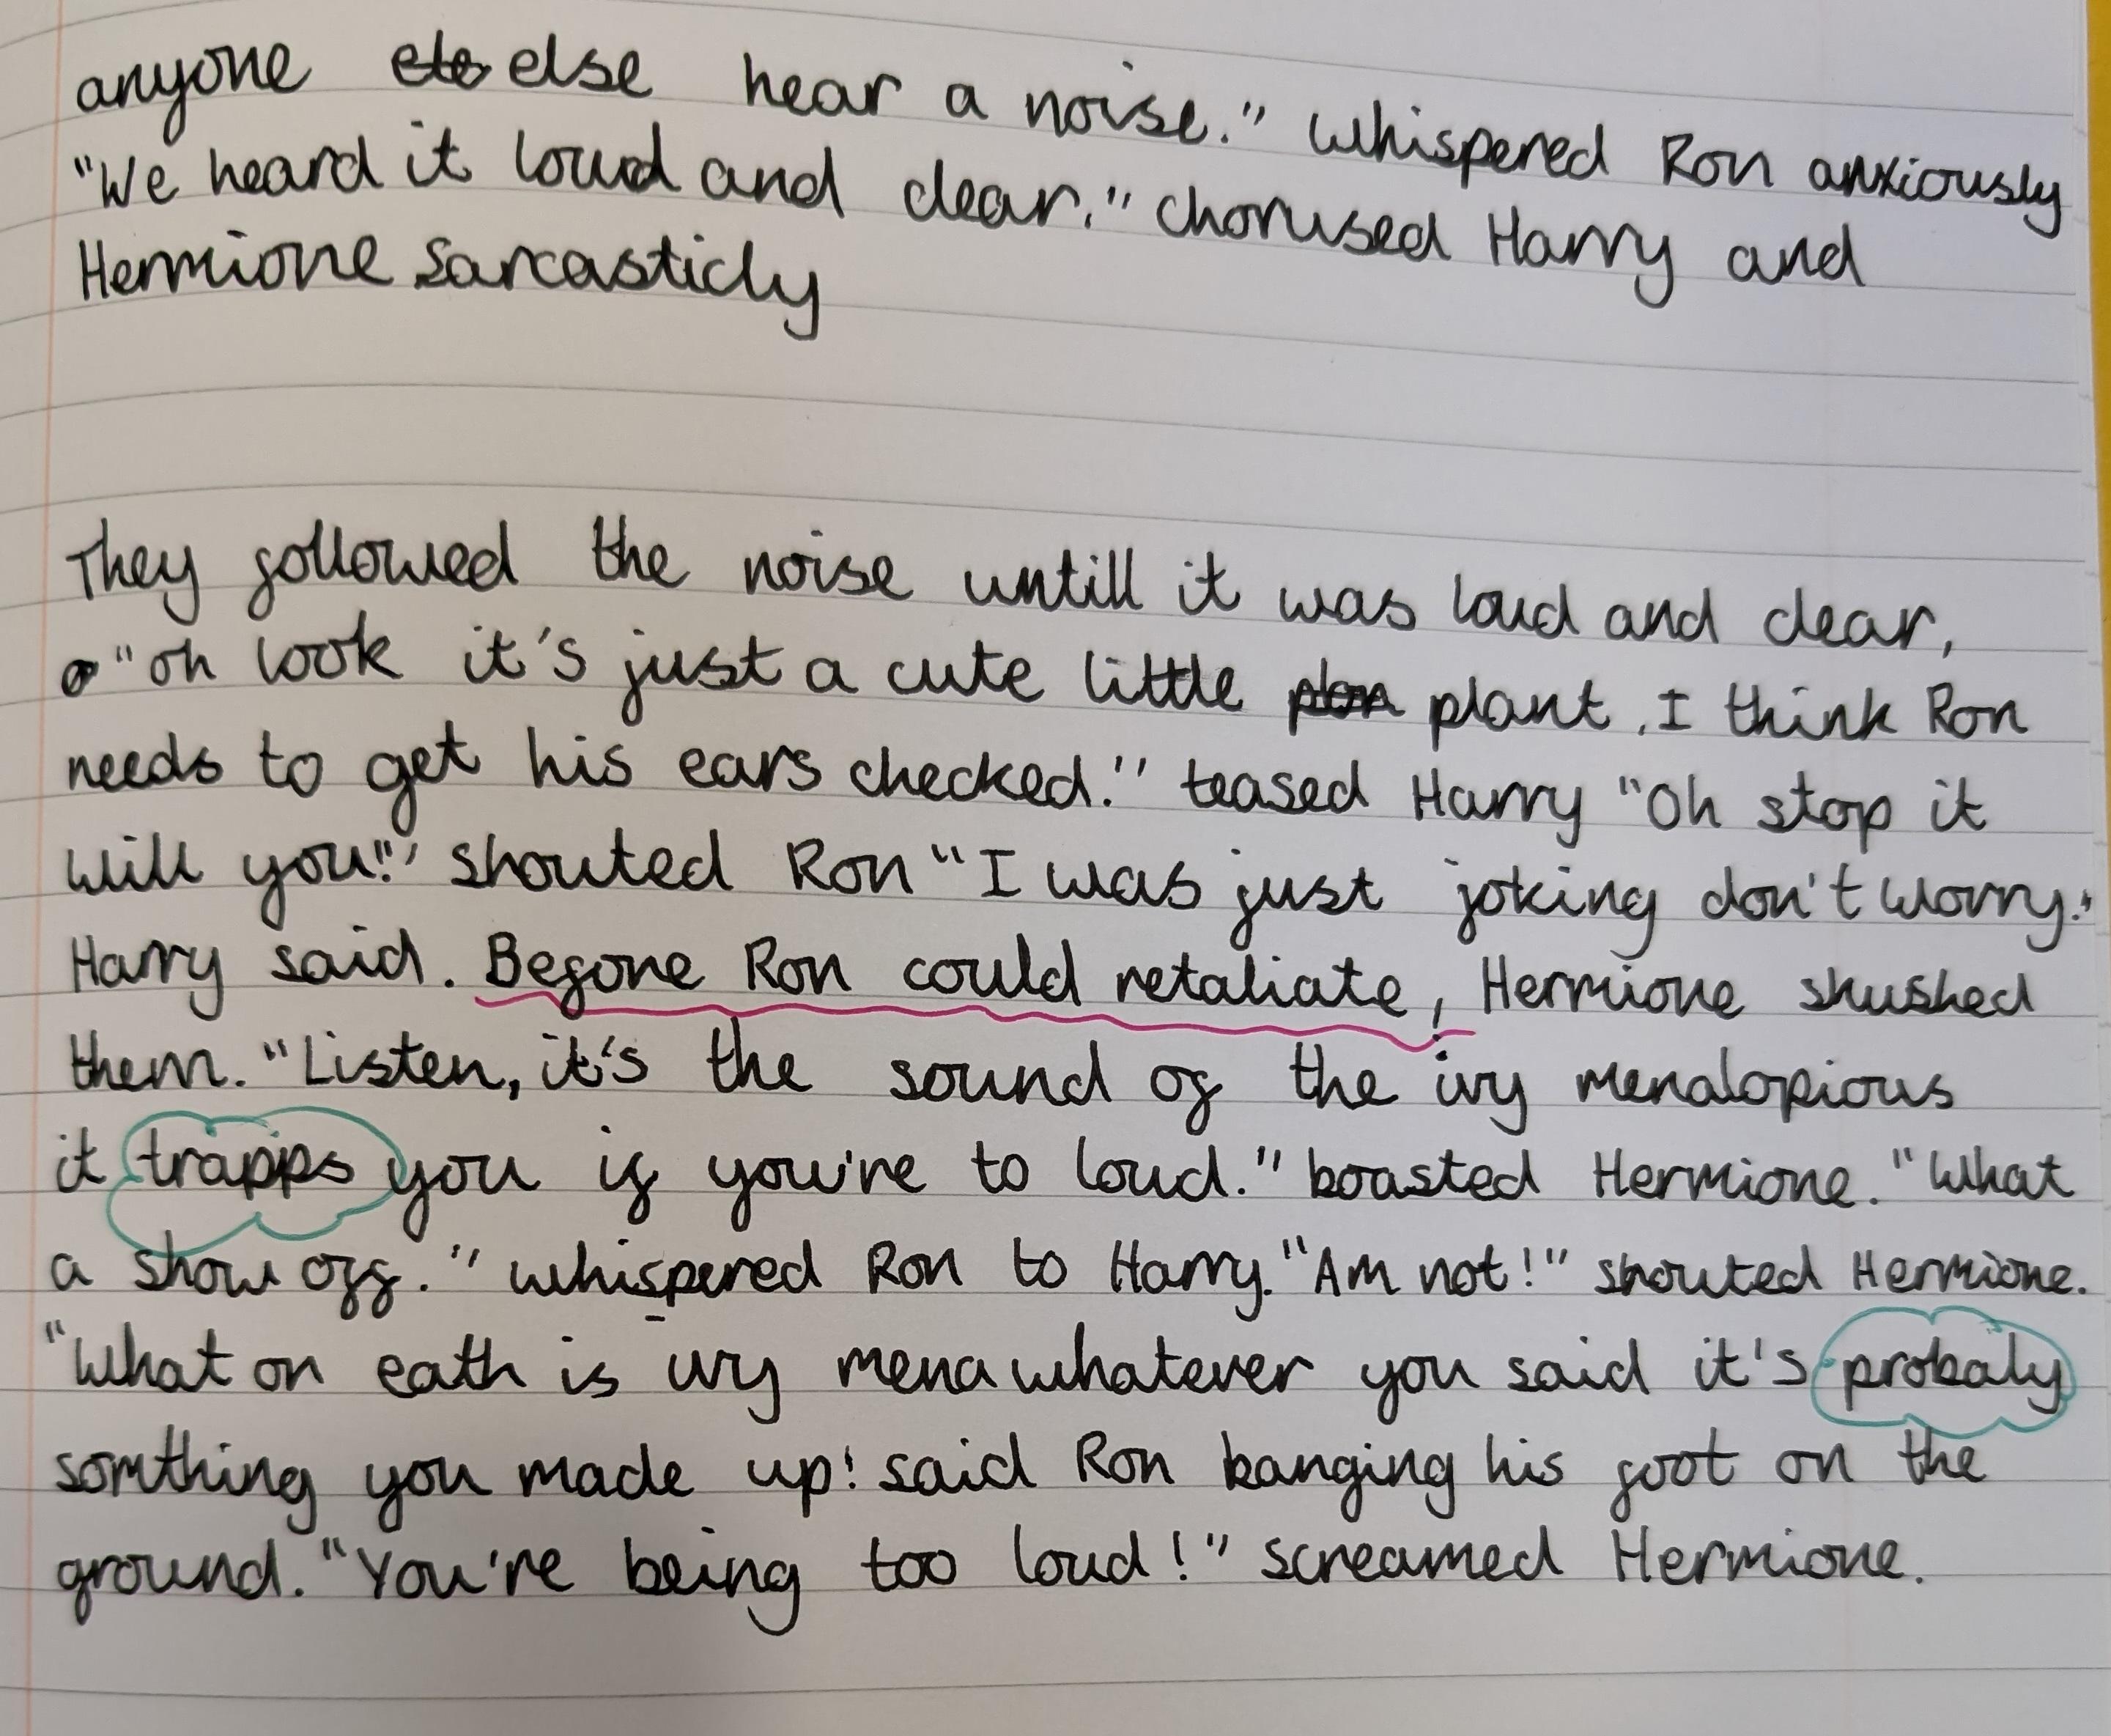 anyone ele else hear a noise." whispered Ron anxiously
"We heard it loud and clear." chorused Harry and
Hermione sarcasticly
They followed the noise untill it was loud and clear,
o "oh look it's just a cute little plan plant. I think Ron
needs to get his ears checked!" teased Harry "Oh stop it
will you!" shouted Ron "I was just joking don't worry."
Harry said. Before Ron could retaliate, Hermione shushed
them. "Listen, it's the sound of the ivy menalopious
it trapps you if you're to loud." boasted Hermione. "What
a show off." whispered Ron to Harry. "Am not!" shouted Hermione.
"What on eath is ivy mena whatever you said it's probaly
somthing you made up! said Ron banging his foot on the
ground. "You're being too loud!" screamed Hermione.